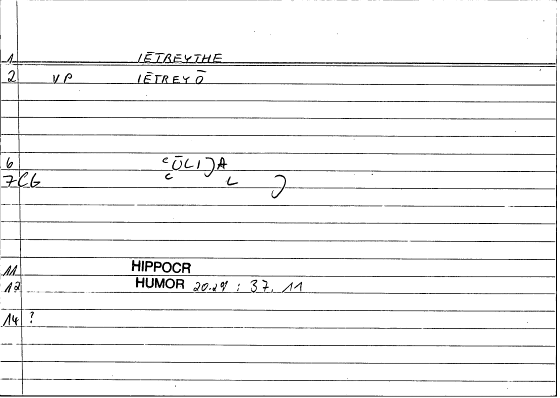 1 IĒTREYTHE
2 VP IĒTREYŌ
6 ͑ŌLI)A
7 CG
11 HIPPOCR
12 HUMOR 20.29 : 37. 11
14 ?